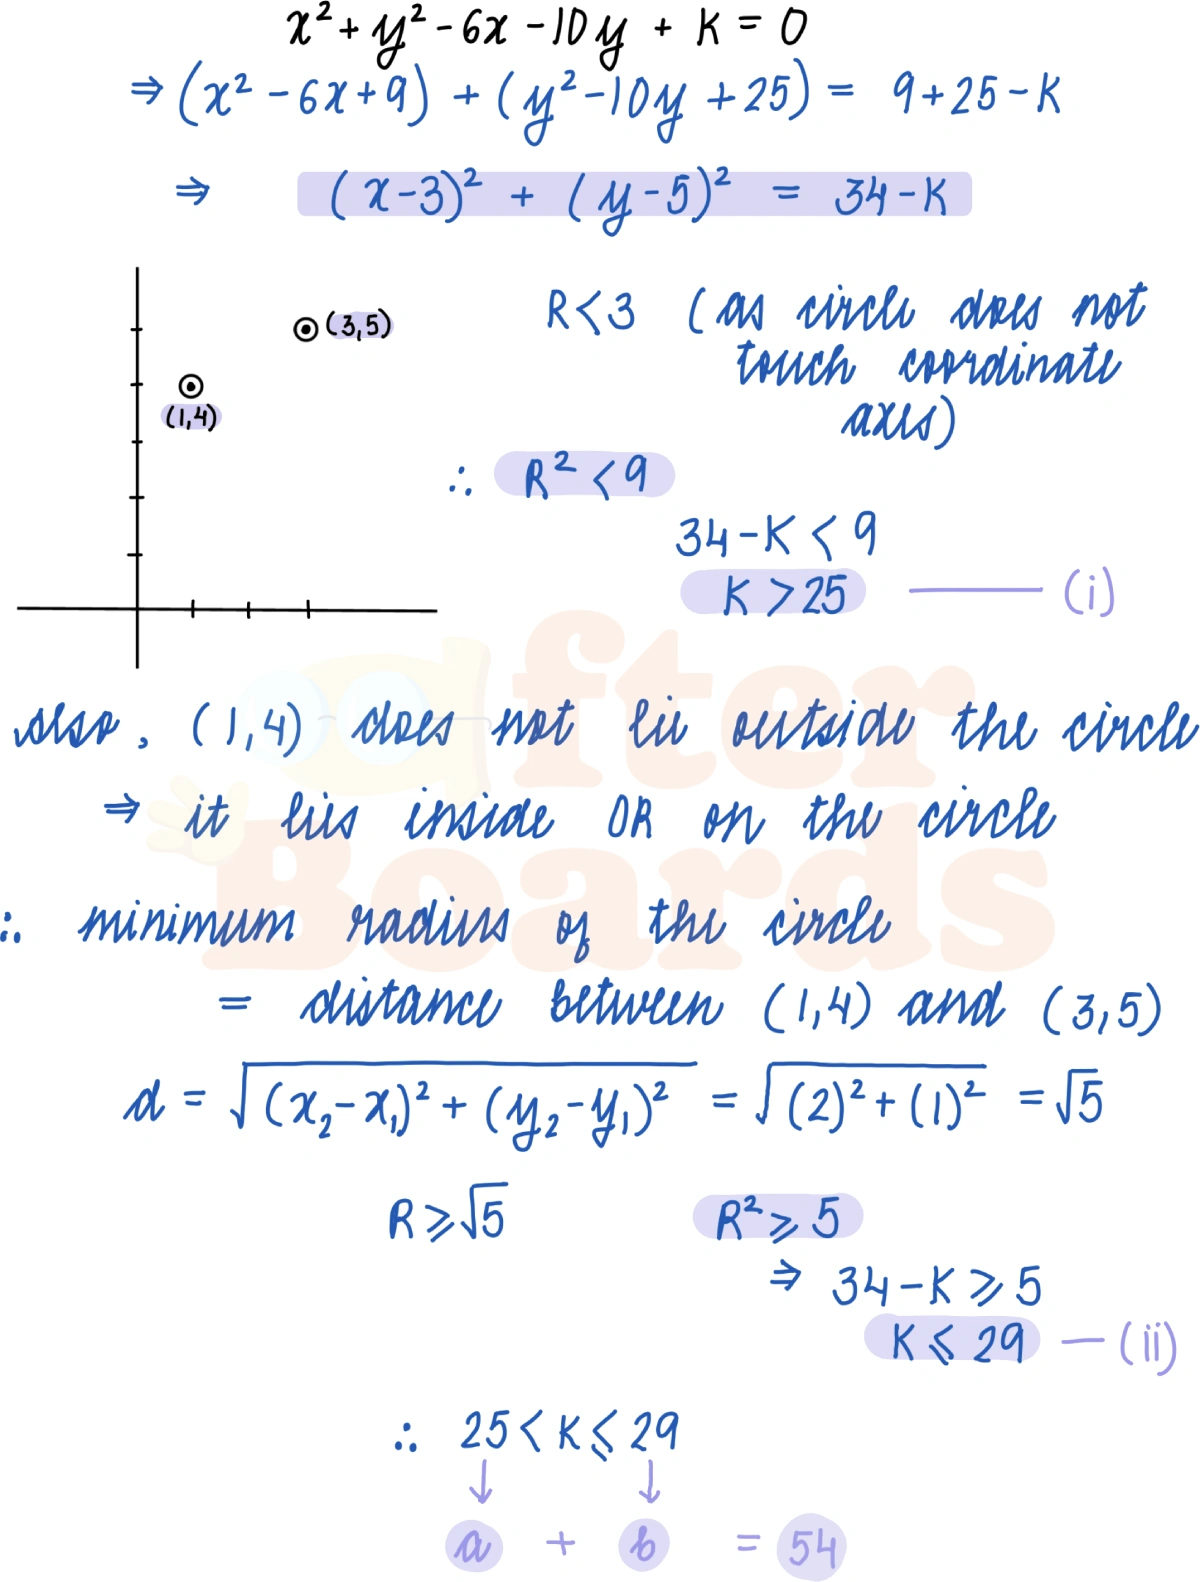 x² + y² - 6x - 10y + K = 0
⇒ (x² - 6x + 9) + (y² - 10y + 25) = 9 + 25 - K
⇒ (x - 3)² + (y - 5)² = 34 - K
(3,5)
(1,4)
R < 3 (as circle does not
touch coordinate
axis)
∴ R² < 9
34 - K < 9
K > 25 —— (i)
also, (1,4) does not lie outside the circle
⇒ it lies inside OR on the circle
∴ minimum radius of the circle
= distance between (1,4) and (3,5)
d = √((x₂ - x₁)² + (y₂ - y₁)²) = √((2)² + (1)²) = √5
R ⩾ √5 R² ⩾ 5
⇒ 34 - K ⩾ 5
K ⩽ 29 — (ii)
∴ 25 < K ⩽ 29
↓ ↓
a + b = 54
after
Boards